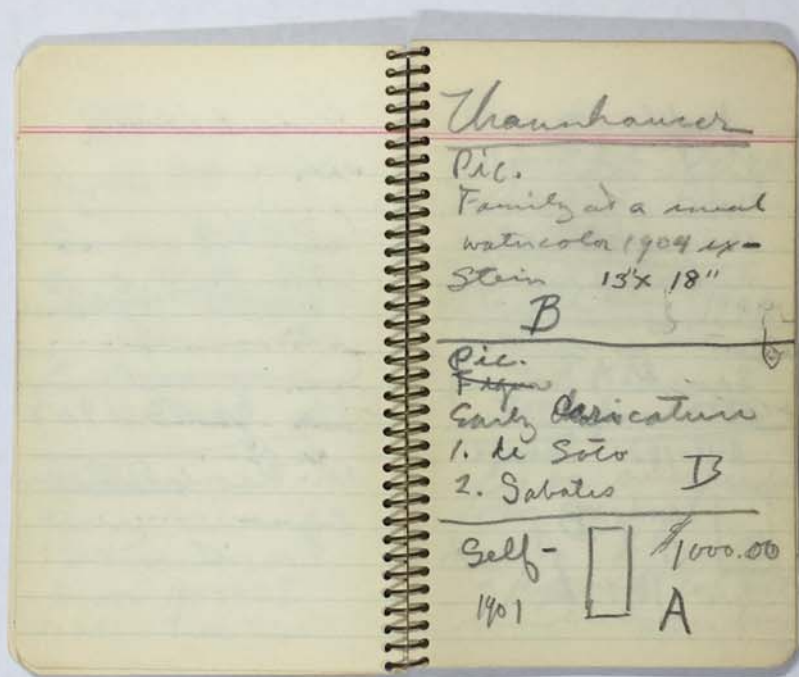 Thannhauser
Pic.
Family at a meal
watercolor 1904 ex-
Stein 13"x 18"
B
Pic.
Figure
Early Caricature
1. de Soto
2. Sabates B
Self- $1000.00
1901 A